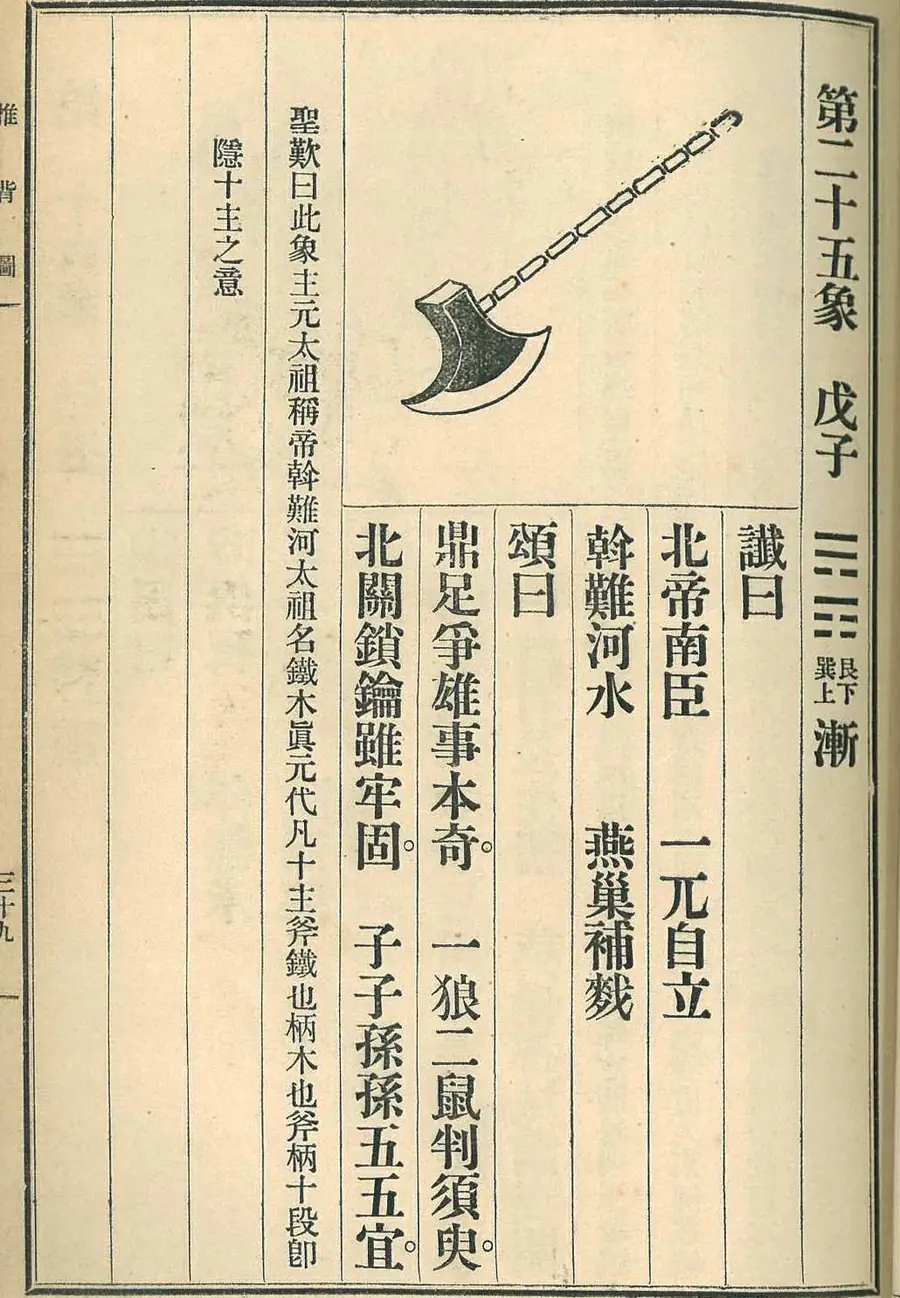 第二十五象 戊子 艮下巽上 漸
讖曰
北帝南臣 一兀自立
斡難河水 燕巢補麰
頌曰
鼎足爭雄事本奇。 一狼二鼠判須臾。
北關鎖鑰雖牢固。 子子孫孫五五宜。
聖歎曰此象主元太祖稱帝斡難河太祖名鐵木眞元代凡十主斧鐵也柄木也斧柄十段卽
隱十主之意
推背圖
三十九